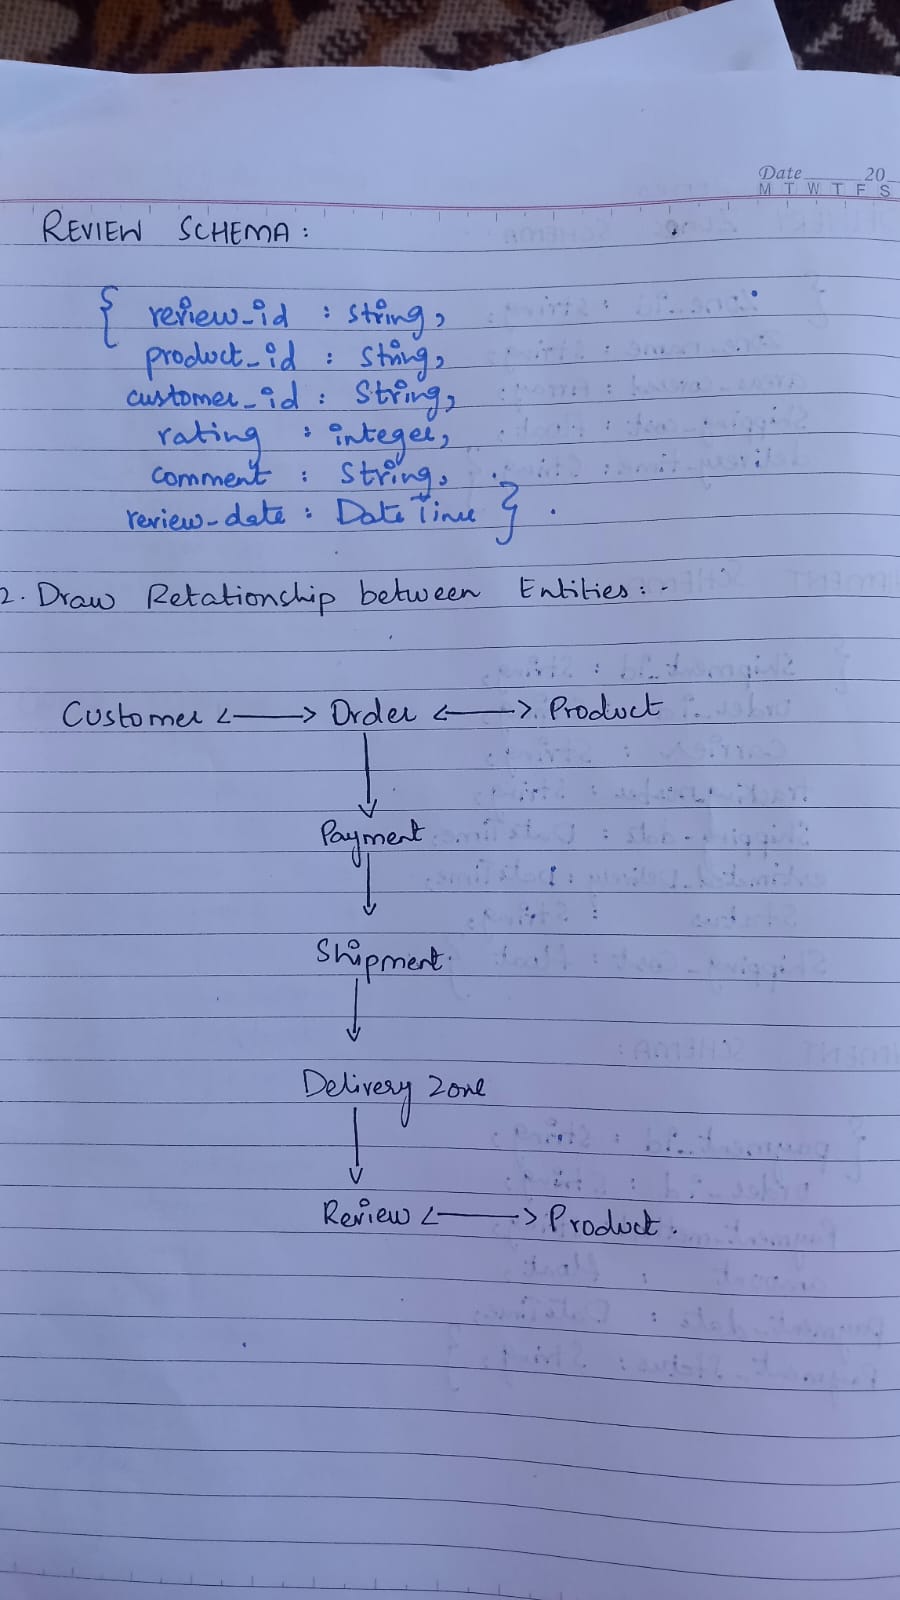 Date 20
M T W T F S
REVIEW SCHEMA :
{ review_id : string,
product_id : string,
customer_id : String,
rating : integer,
comment : String,
review_date : DateTime } .
2. Draw Relationship between Entities : -
Customer <——> Order <——> Product
Payment
Shipment
Delivery Zone
Review <——> Product .